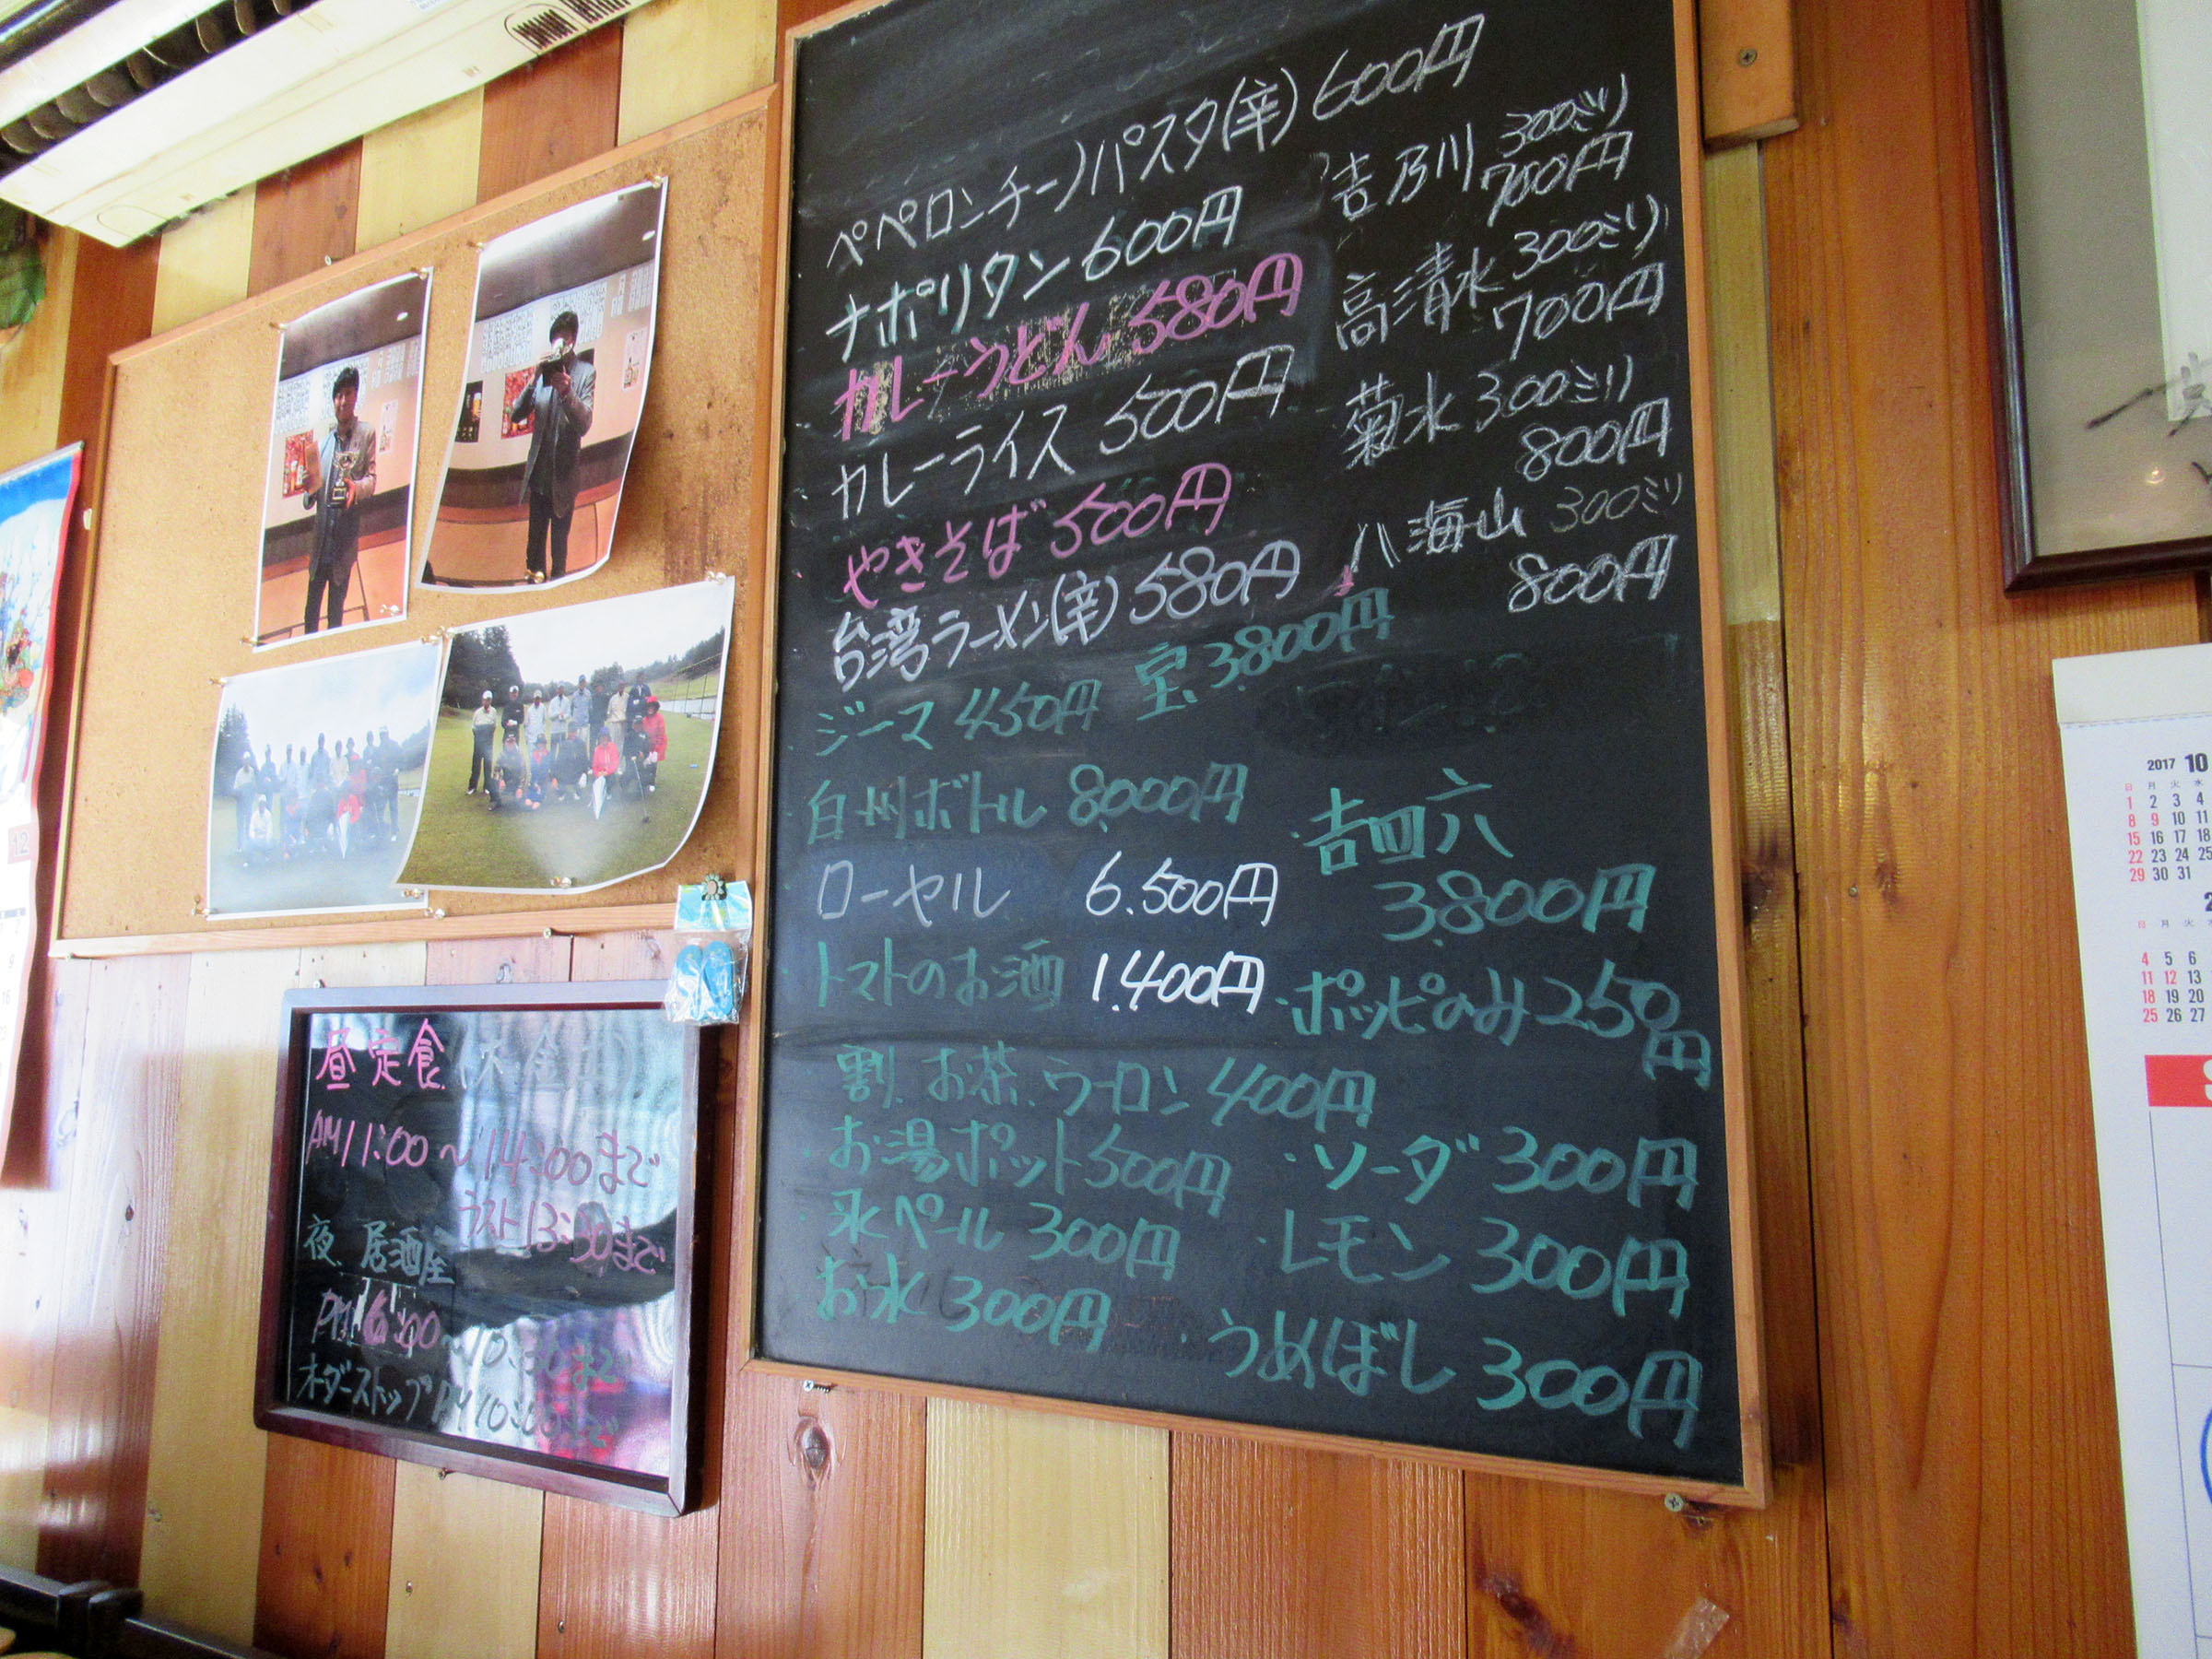 ペペロンチーノパスタ(辛)600円
ナポリタン600円
カレーうどん580円
カレーライス 500円
やきそば500円
台湾ラーメン(辛)580円
吉乃川 300ミリ
700円
高清水 300ミリ
700円
菊水300ミリ
800円
八海山 300ミリ
800円
・ジーマ 450円 宝 3.800円
・白州ボトル 8.000円
・吉四六
3.800円
ローヤル 6.500円
・トマトのお酒 1.400円
・ホッピのみ250円
割 お茶.ウーロン400円
・お湯ポット500円 ・ソーダ 300円
・氷ペール 300円 ・レモン 300円
お水 300円 ・うめぼし 300円
昼定食(木.金.土)
AM11:00〜14:00まで
ラスト13:30まで
夜.居酒屋
PM6:00〜10:30まで
オーダーストップPM10:00まで
12
2017 10
日 月 火 水
1 2 3 4
8 9 10 11
15 16 17 18
22 23 24 25
29 30 31
日 月 火
4 5 6
11 12 13
18 19 20
25 26 27